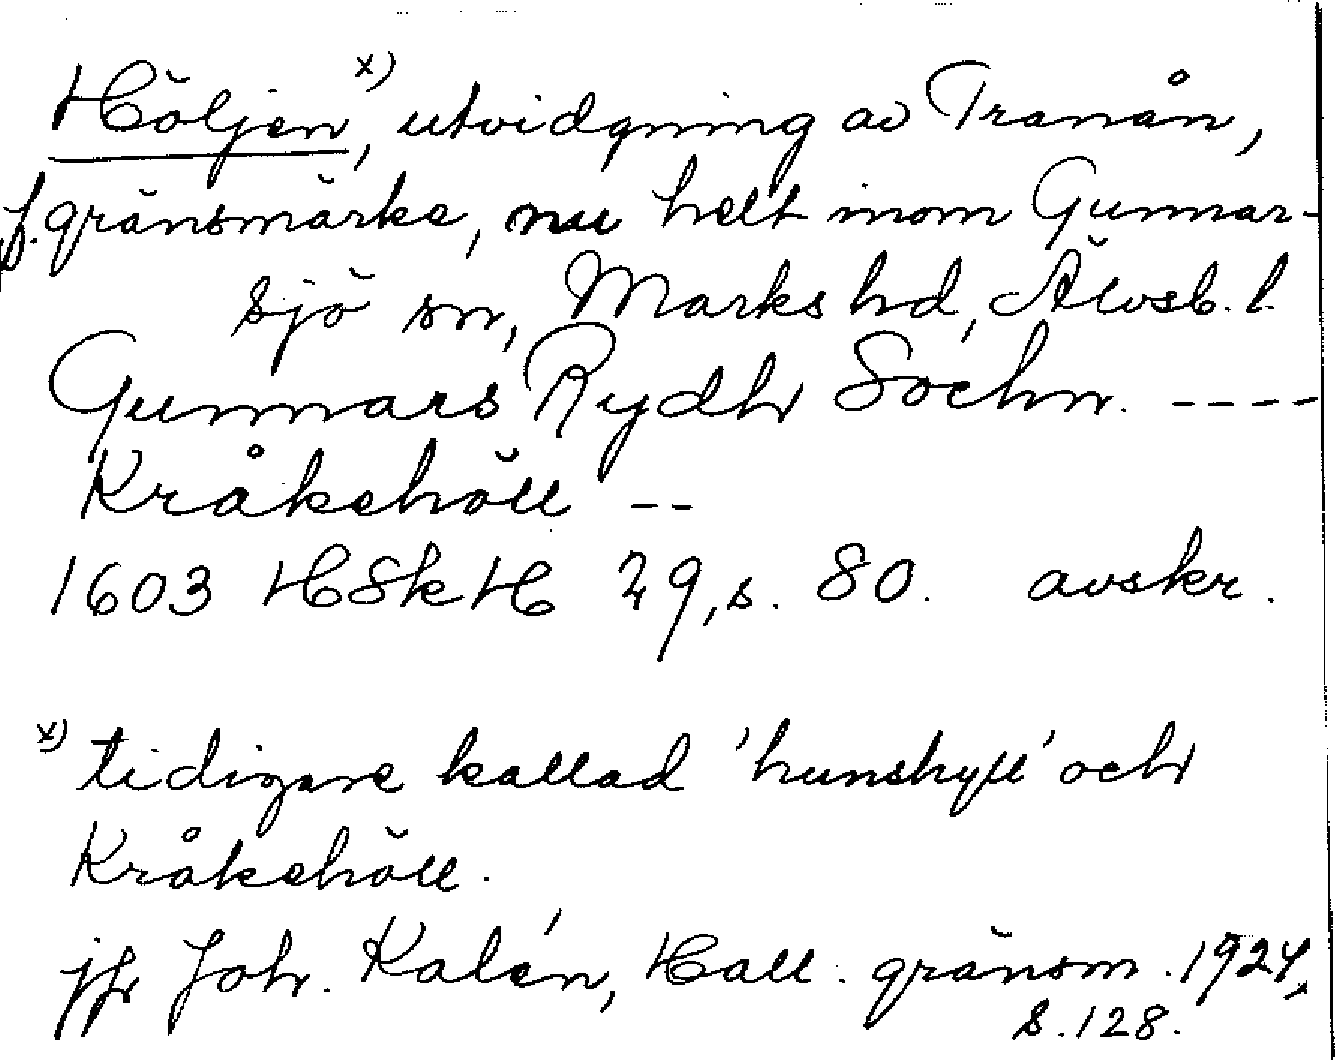 Höljen x), utvidgning av Tranån,
f. gränsmärke, nu helt inom Gunnar-
sjö sn, Marks hd, Älvsb. l.
Gunnars Rydh Sochn. ----
Kråkehöll --
1603 HSkH 29, s. 80. avskr.
x) tidigare kallad 'hunshyll' och
Kråkehöll.
jfr Joh. Kalén, Hall. gränsm. 1924,
s. 128.